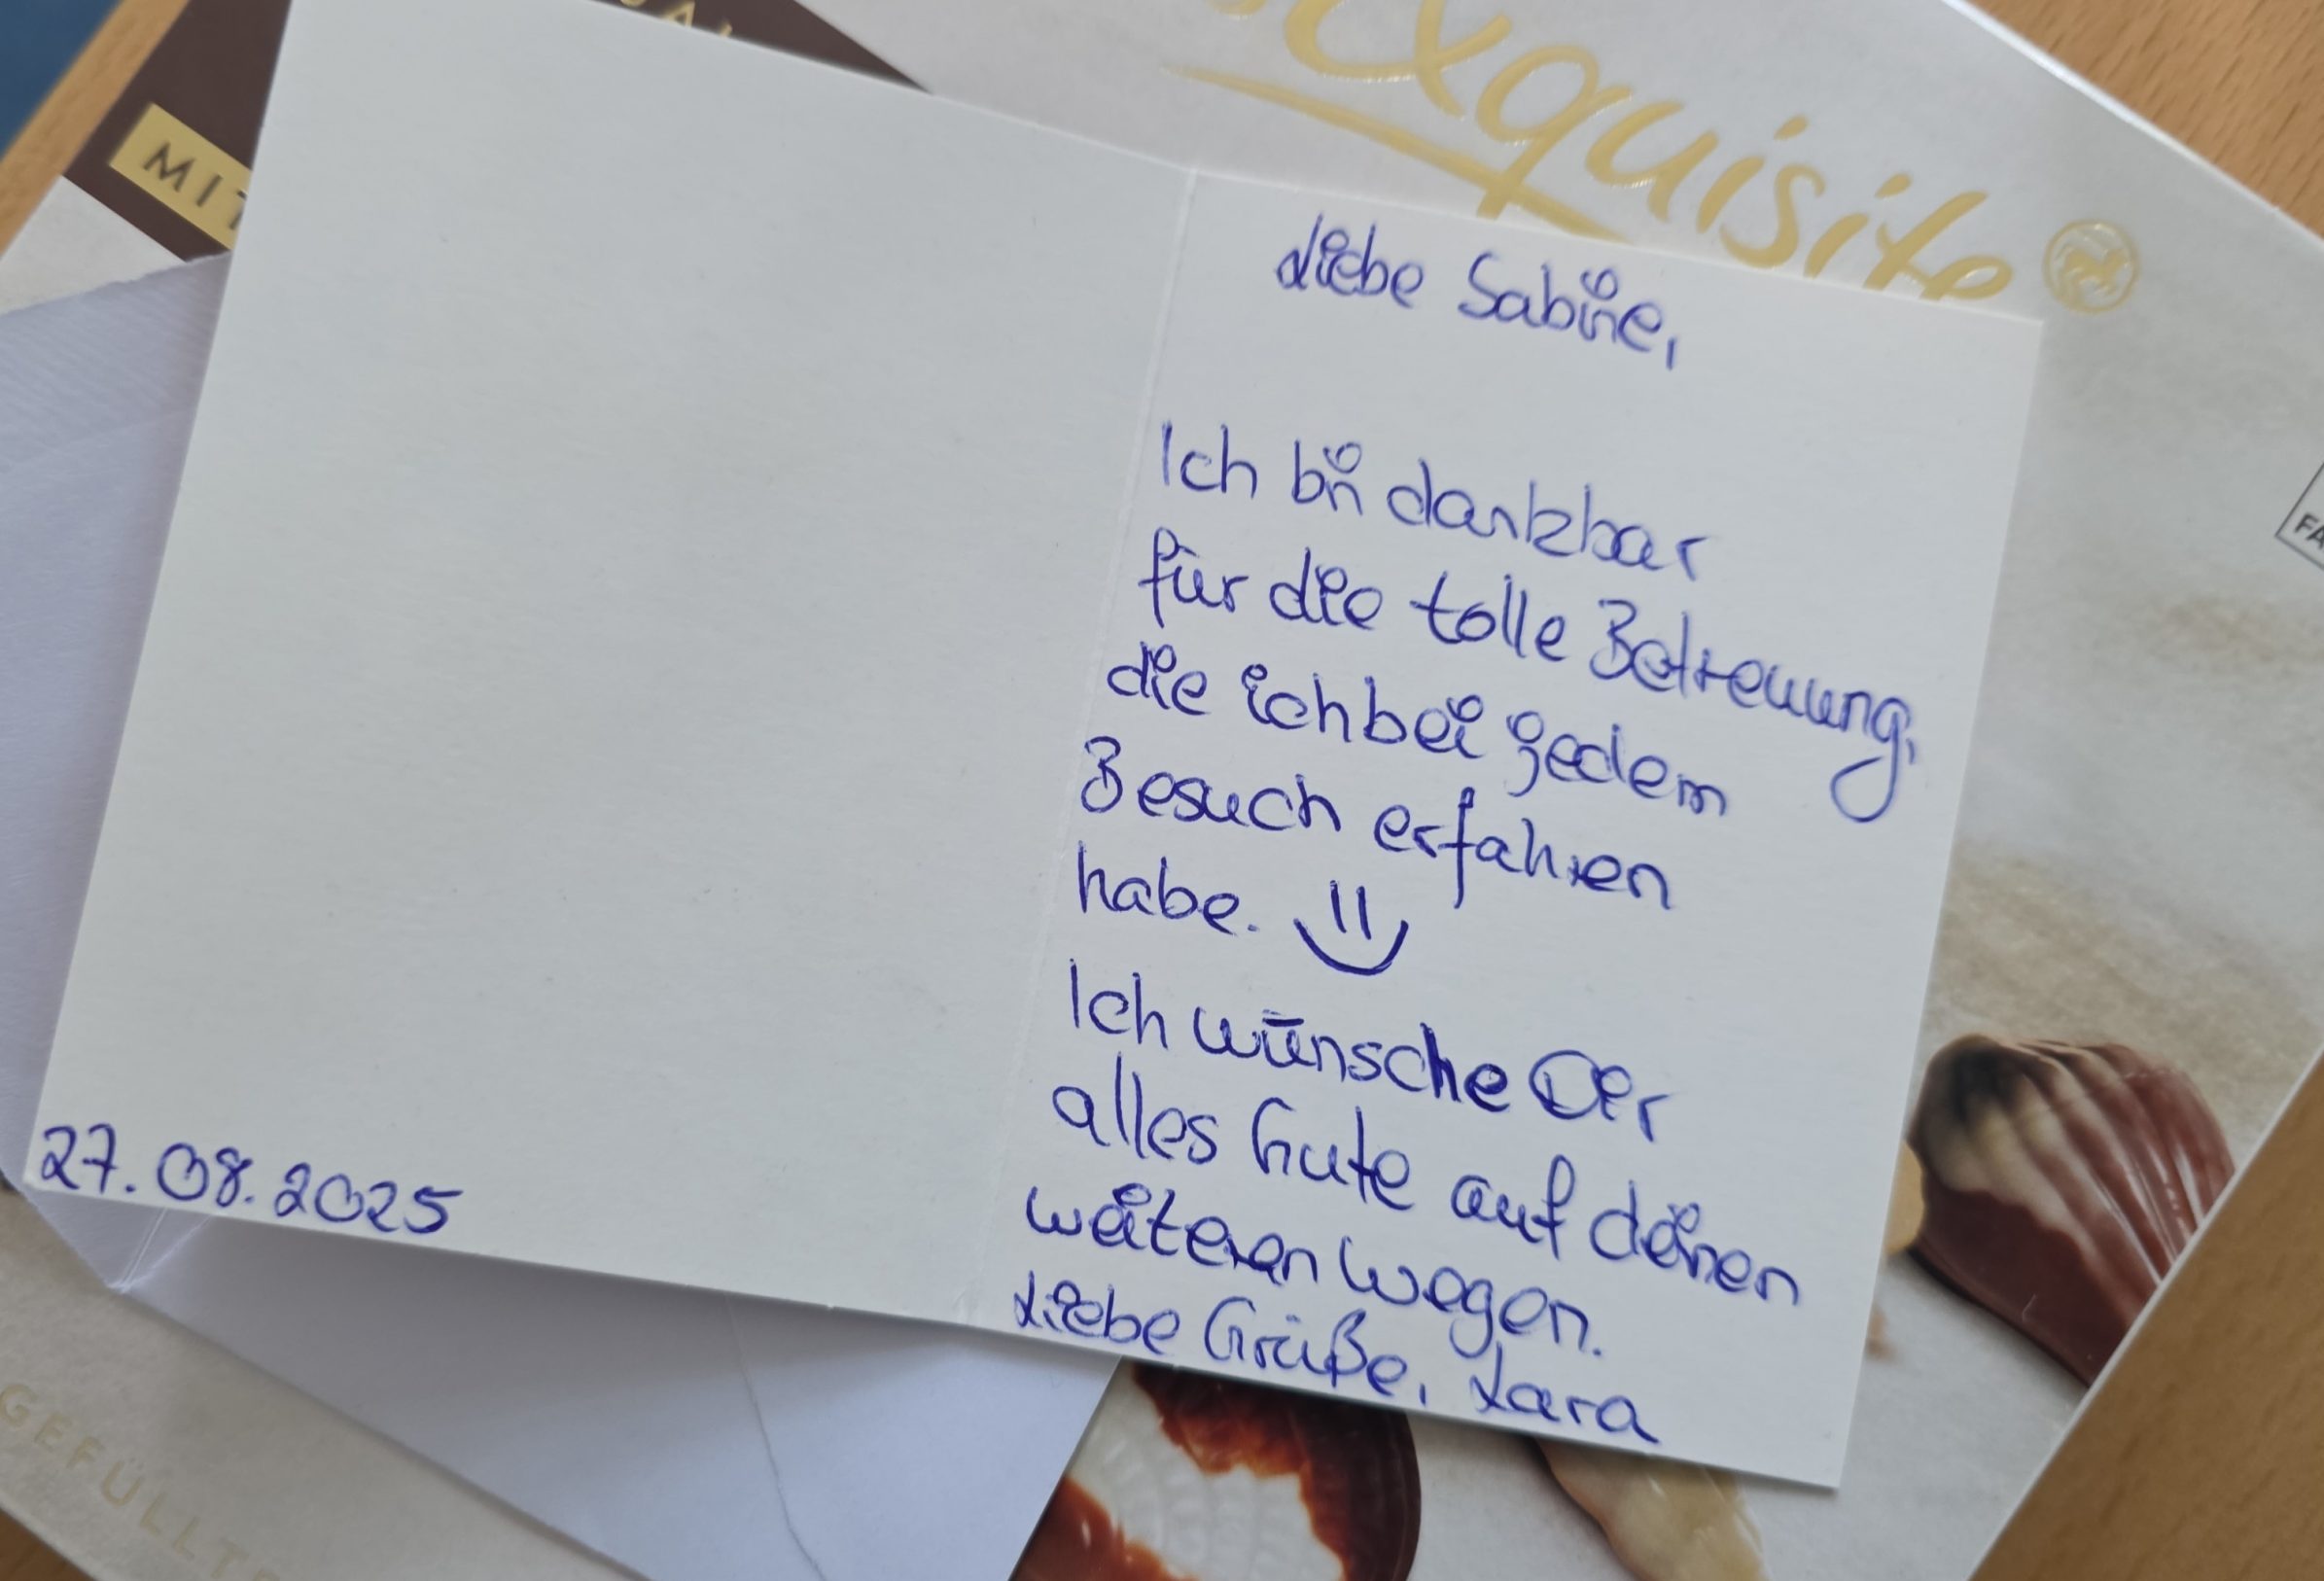 Exquisite
MIT
FA
Liebe Sabine,
Ich bin dankbar
für die tolle Betreuung,
die ich bei jedem
Besuch erfahren
habe. =)
Ich wünsche Dir
alles Gute auf deinen
weiteren Wegen.
Liebe Grüße, Lara
27.08.2025
GEFÜLLTE